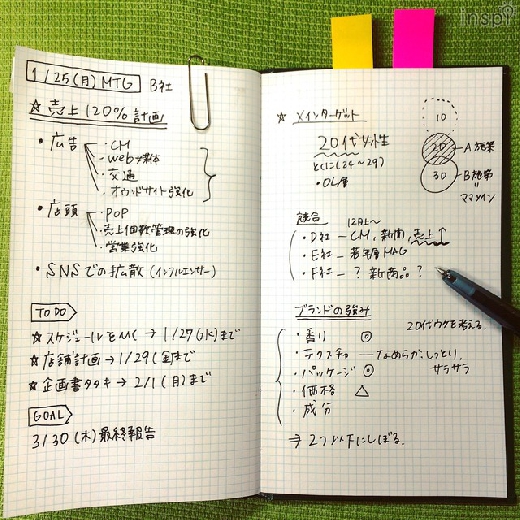 inspi
1/25(月) MTG B社
☆ 売上120%計画
・広告 ・CM
・Web
・交通
・オウンドサイト強化
・店頭 ・POP
・売上個数管理の強化
・営業強化
・SNSでの拡散 (インフルエンサー)
TO DO
☆スケジュール → 1/27(水)まで
☆店舗計画 → 1/29(金)まで
☆企画書タタキ → 2/1(月)まで
GOAL
3/30(木)最終報告
☆ メインターゲット
20代女性
とくに(24~29)
・OL層
10
20 A
30 B
競合 12月上~
・D社 — CM, 新聞, 売上↑
・E社 —
・F社 — ? 新商品?
ブランドの強み
20代ウケを考える
・香り ◎
・テクスチャ — なめらかしっとり,
サラサラ
・パッケージ ◎
・価格 △
・成分
⇒ 2つ以下にしぼる.